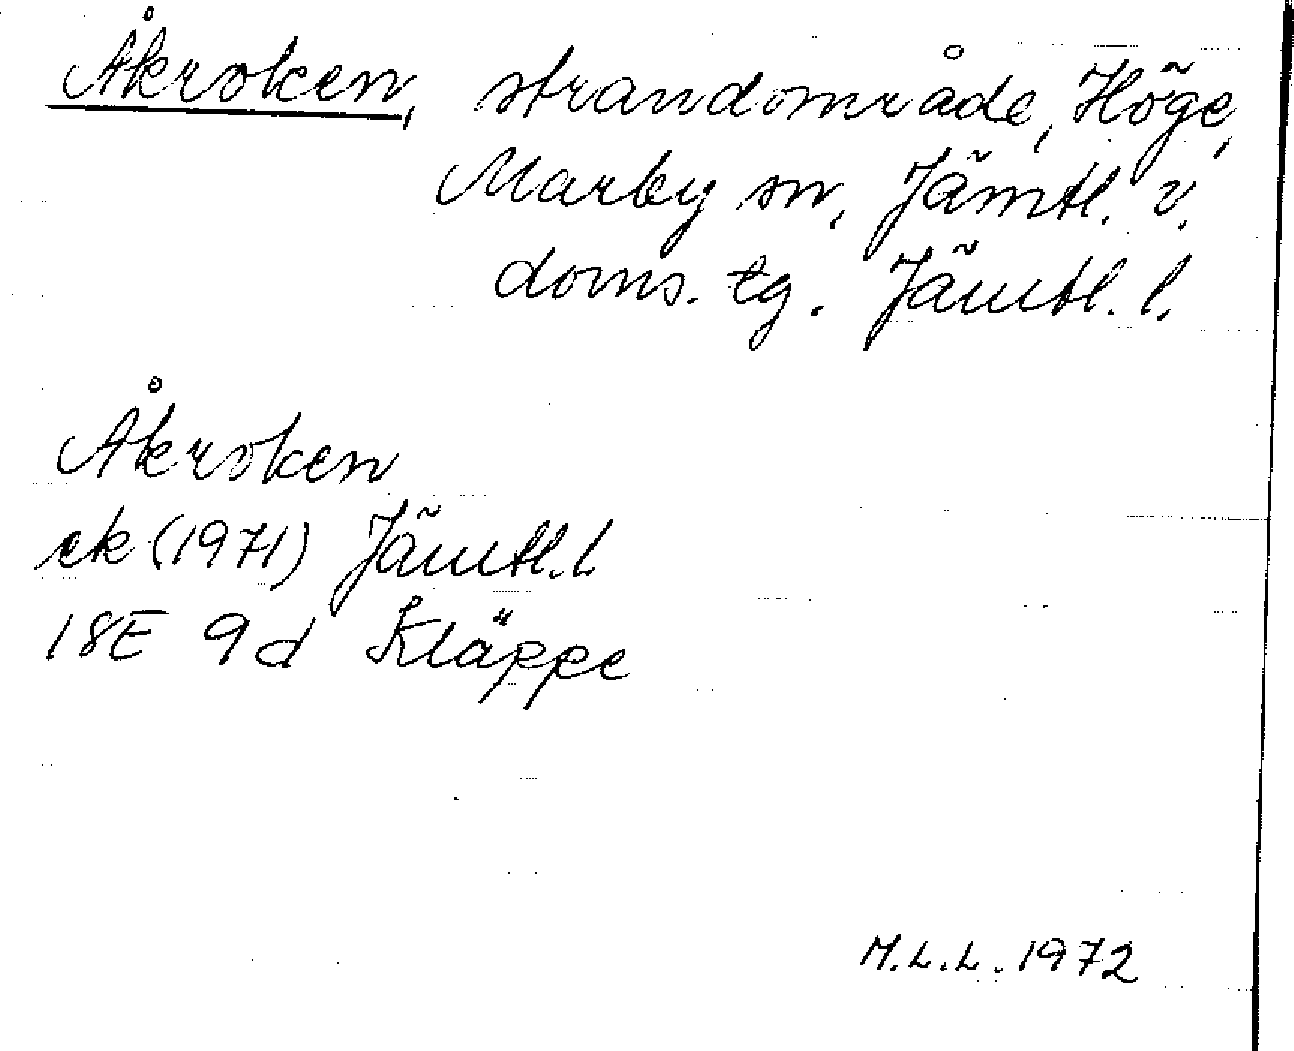 Åkroken, strandområde, Höge,
Marby sn, Jämtl. v.
doms. tg. Jämtl. l.
Åkroken
ek (1971) Jämtl. l
18E 9d Kläppe
M.L.L. 1972